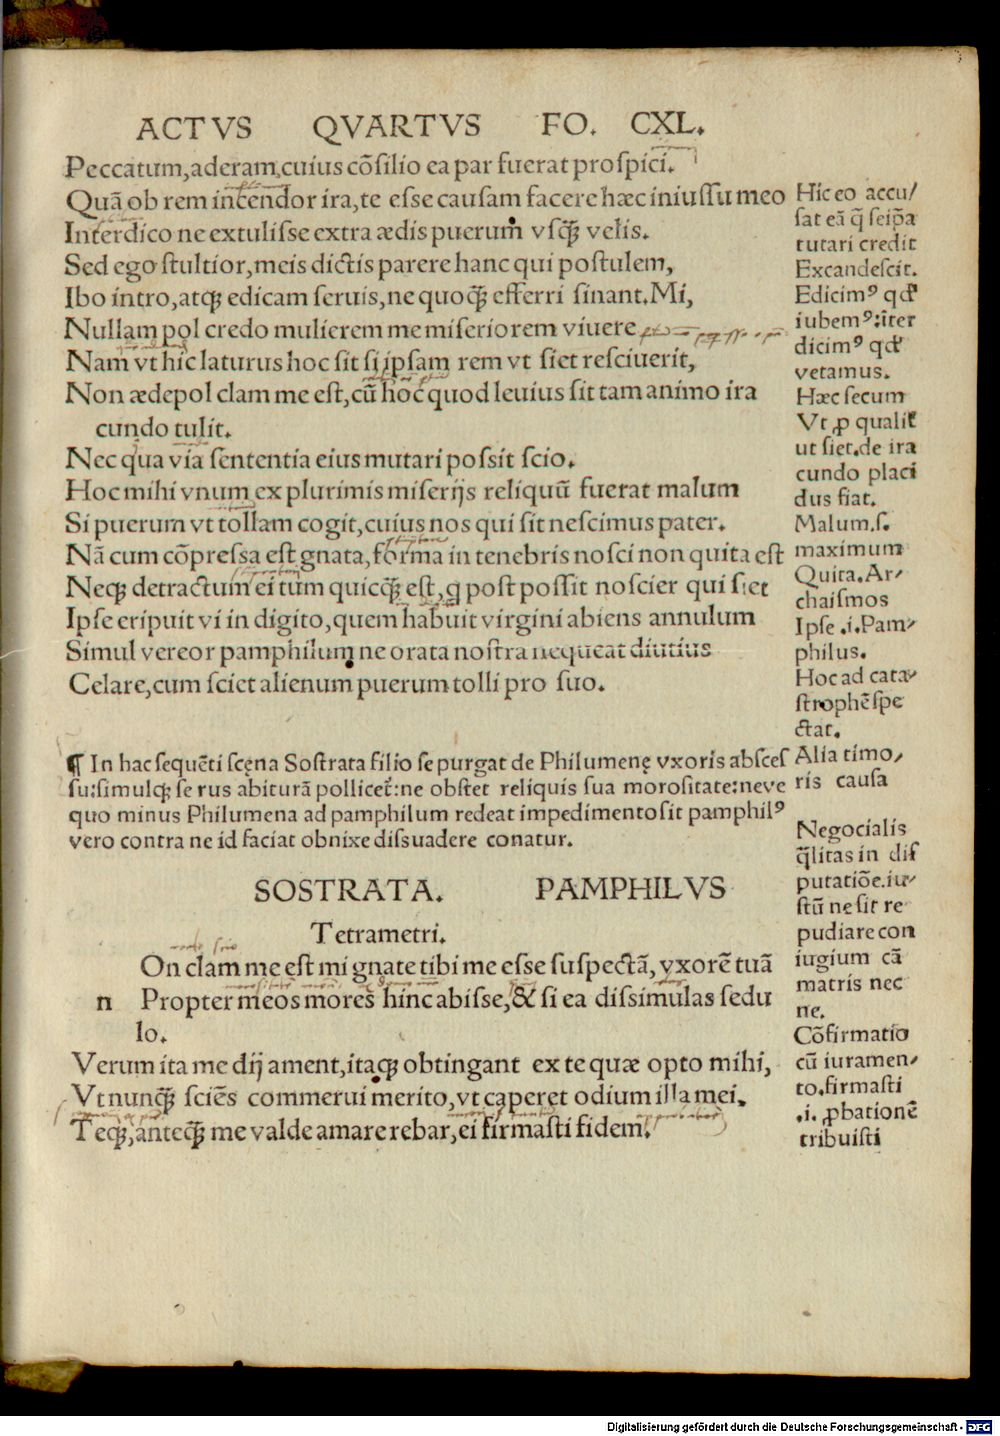 ACTVS QVARTVS FO. CXL.
Peccatum,aderam,cuius cõsilio ea par fuerat prospici.
Quã ob rem incendor ira,te esse causam facere hæc iniussu meo
Interdico ne extulisse extra ædis puerum vsq̃ velis.
Sed ego stultior,meis dictis parere hanc qui postulem,
Ibo intro,atq; edicam seruis,ne quoq̃ efferri sinant.Mi,
Nullam pol credo mulierem me miseriorem viuere
Nam vt hic laturus hoc sit si ipsam rem vt siet resciuerit,
Non ædepol clam me est,cũ hoc quod leuius sit tam animo ira
cundo tulit.
Nec qua via sententia eius mutari possit scio.
Hoc mihi vnum ex plurimis miserijs reliquũ fuerat malum
Si puerum vt tollam cogit,cuius nos qui sit nescimus pater.
Nã cum cõpressa est gnata,forma in tenebris nosci non quita est
Neq; detractum ei tum quicq̃ est,q post possit noscier qui siet
Ipse eripuit vi in digito,quem habuit virgini abiens annulum
Simul vereor pamphilum ne orata nostra nequeat diutius
Celare,cum sciet alienum puerum tolli pro suo.
¶ In hac sequẽti scęna Sostrata filio se purgat de Philumenę vxoris absces
su:simulq; se rus abiturã pollicet̃:ne obstet reliquis sua morositate:neve
quo minus Philumena ad pamphilum redeat impedimento sit pamphilꝰ
vero contra ne id faciat obnixe dissuadere conatur.
SOSTRATA. PAMPHILVS
Tetrametri.
On clam me est mi gnate tibi me esse suspectã, vxorẽ tuã
n Propter meos mores hinc abisse,& si ea dissimulas sedu
lo.
Verum ita me dij ament,itaq; obtingant ex te quæ opto mihi,
Vt nunq̃ sciẽs commerui merito,vt caperet odium illa mei.
Teq;,anteq̃ me valde amare rebar,ei firmasti fidem.
Hic eo accu/
sat eã q̃ seip̃a
tutari credit
Excandescit.
Edicimꝰ qđ
iubemꝰ:ĩter
dicimꝰ qđ
vetamus.
Hæc secum
Vt ꝓ qualit̃
ut siet.de ira
cundo placi
dus fiat.
Malum.s.
maximum
Quita.Ar/
chaismos
Ipse .i.Pam/
philus.
Hoc ad cata/
strophẽ spe
ctat.
Alia timo/
ris causa
Negocialis
q̃litas in dis
putatiõe.iu/
stũ ne sit re
pudiare con
iugium cã
matris nec
ne.
Cõfirmatio
cũ iuramen/
to.firmasti
.i. ꝓbationẽ
tribuisti
Digitalisierung gefördert durch die Deutsche Forschungsgemeinschaft - DFG